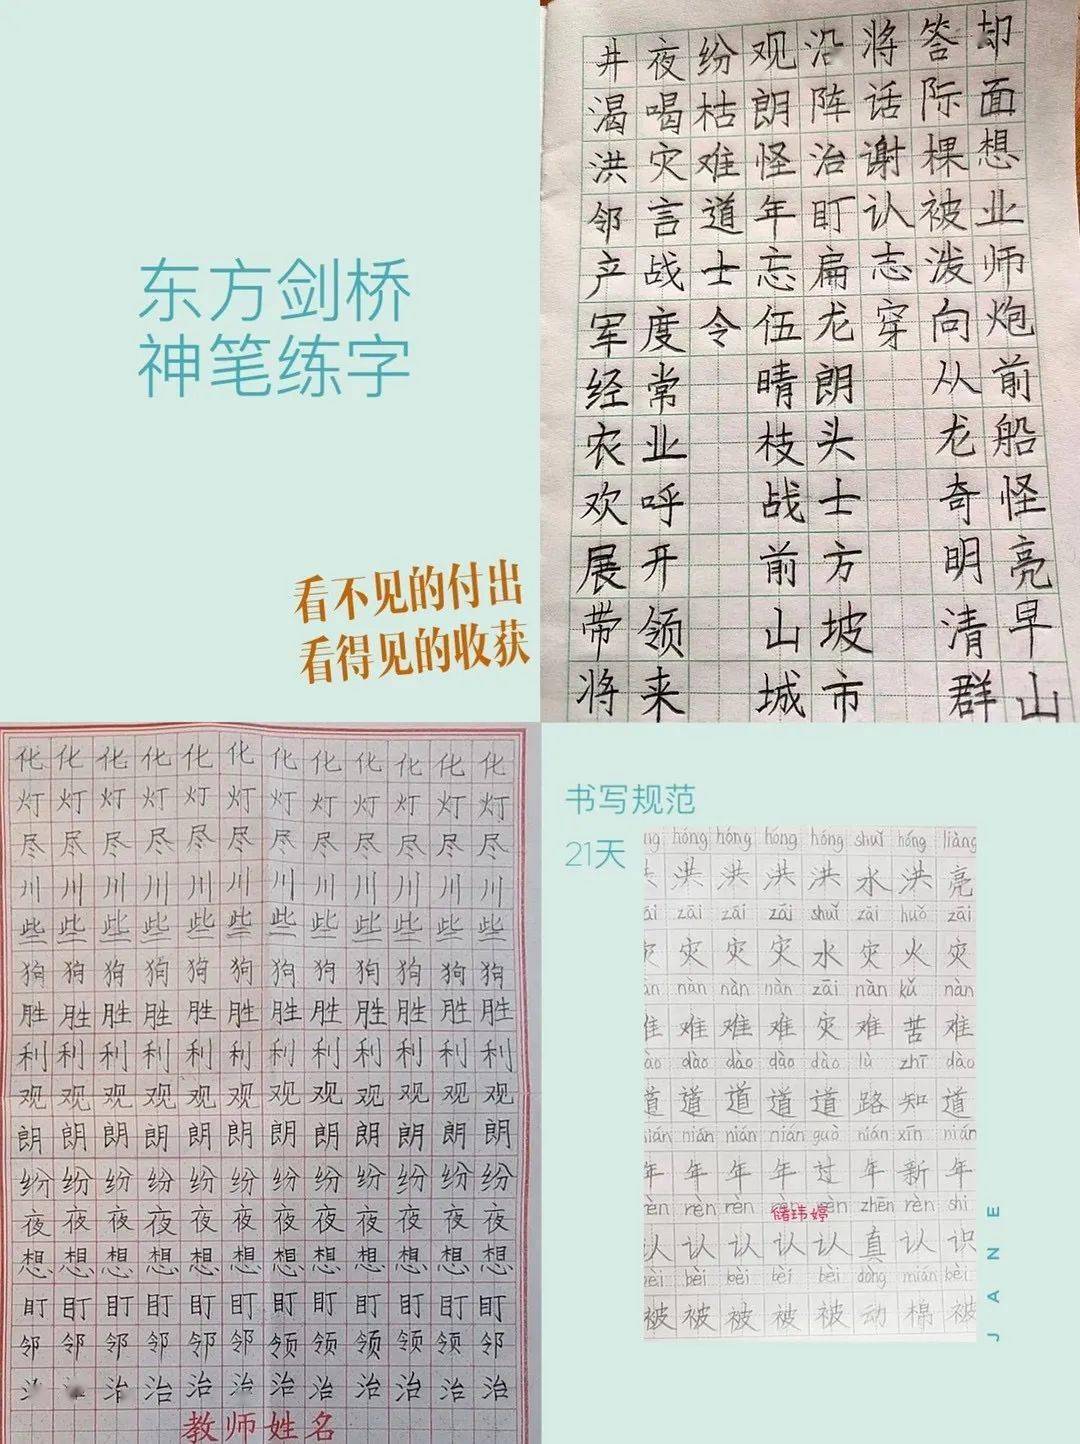 东方剑桥
神笔练字
看不见的付出
看得见的收获
井夜纷观沿将答却
渴喝枯朗阵话际面
洪灾难怪治谢棵想
邻言道年盯认被业
产战士忘扁志泼师
军度令伍龙穿向炮
经常 晴朗 从前
农业 枝头 龙船
欢呼 战士 奇怪
展开 前方 明亮
带领 山坡 清早
将来 城市 群山
化化化化化化化化化化化化
灯灯灯灯灯灯灯灯灯灯灯灯
尽尽尽尽尽尽尽尽尽尽尽尽
川川川川川川川川川川川川
些些些些些些些些些些些些
狗狗狗狗狗狗狗狗狗狗狗狗
胜胜胜胜胜胜胜胜胜胜胜胜
利利利利利利利利利利利利
观观观观观观观观观观观观
朗朗朗朗朗朗朗朗朗朗朗朗
纷纷纷纷纷纷纷纷纷纷纷纷
夜夜夜夜夜夜夜夜夜夜夜夜
想想想想想想想想想想想想
盯盯盯盯盯盯盯盯盯盯盯盯
邻邻邻邻邻邻领领领领领领
治治治治治治治治治治
教师姓名
书写规范
21天
hóng hóng hóng hóng shuǐ hóng liàng
洪洪洪洪水洪亮
zāi zāi zāi shuǐ zāi huǒ zāi
灾灾灾水灾火灾
nàn nàn nàn zāi nàn kǔ nàn
难难难灾难苦难
dào dào dào dào lù zhī dào
道道道道道路知道
nián nián nián guò nián xīn nián
年年年年过年新年
rèn rèn rèn zhēn rèn shi
认认认认真认识
bèi bèi bèi bèi dòng mián bèi
被被被被被动棉被
储玮婷
JANE